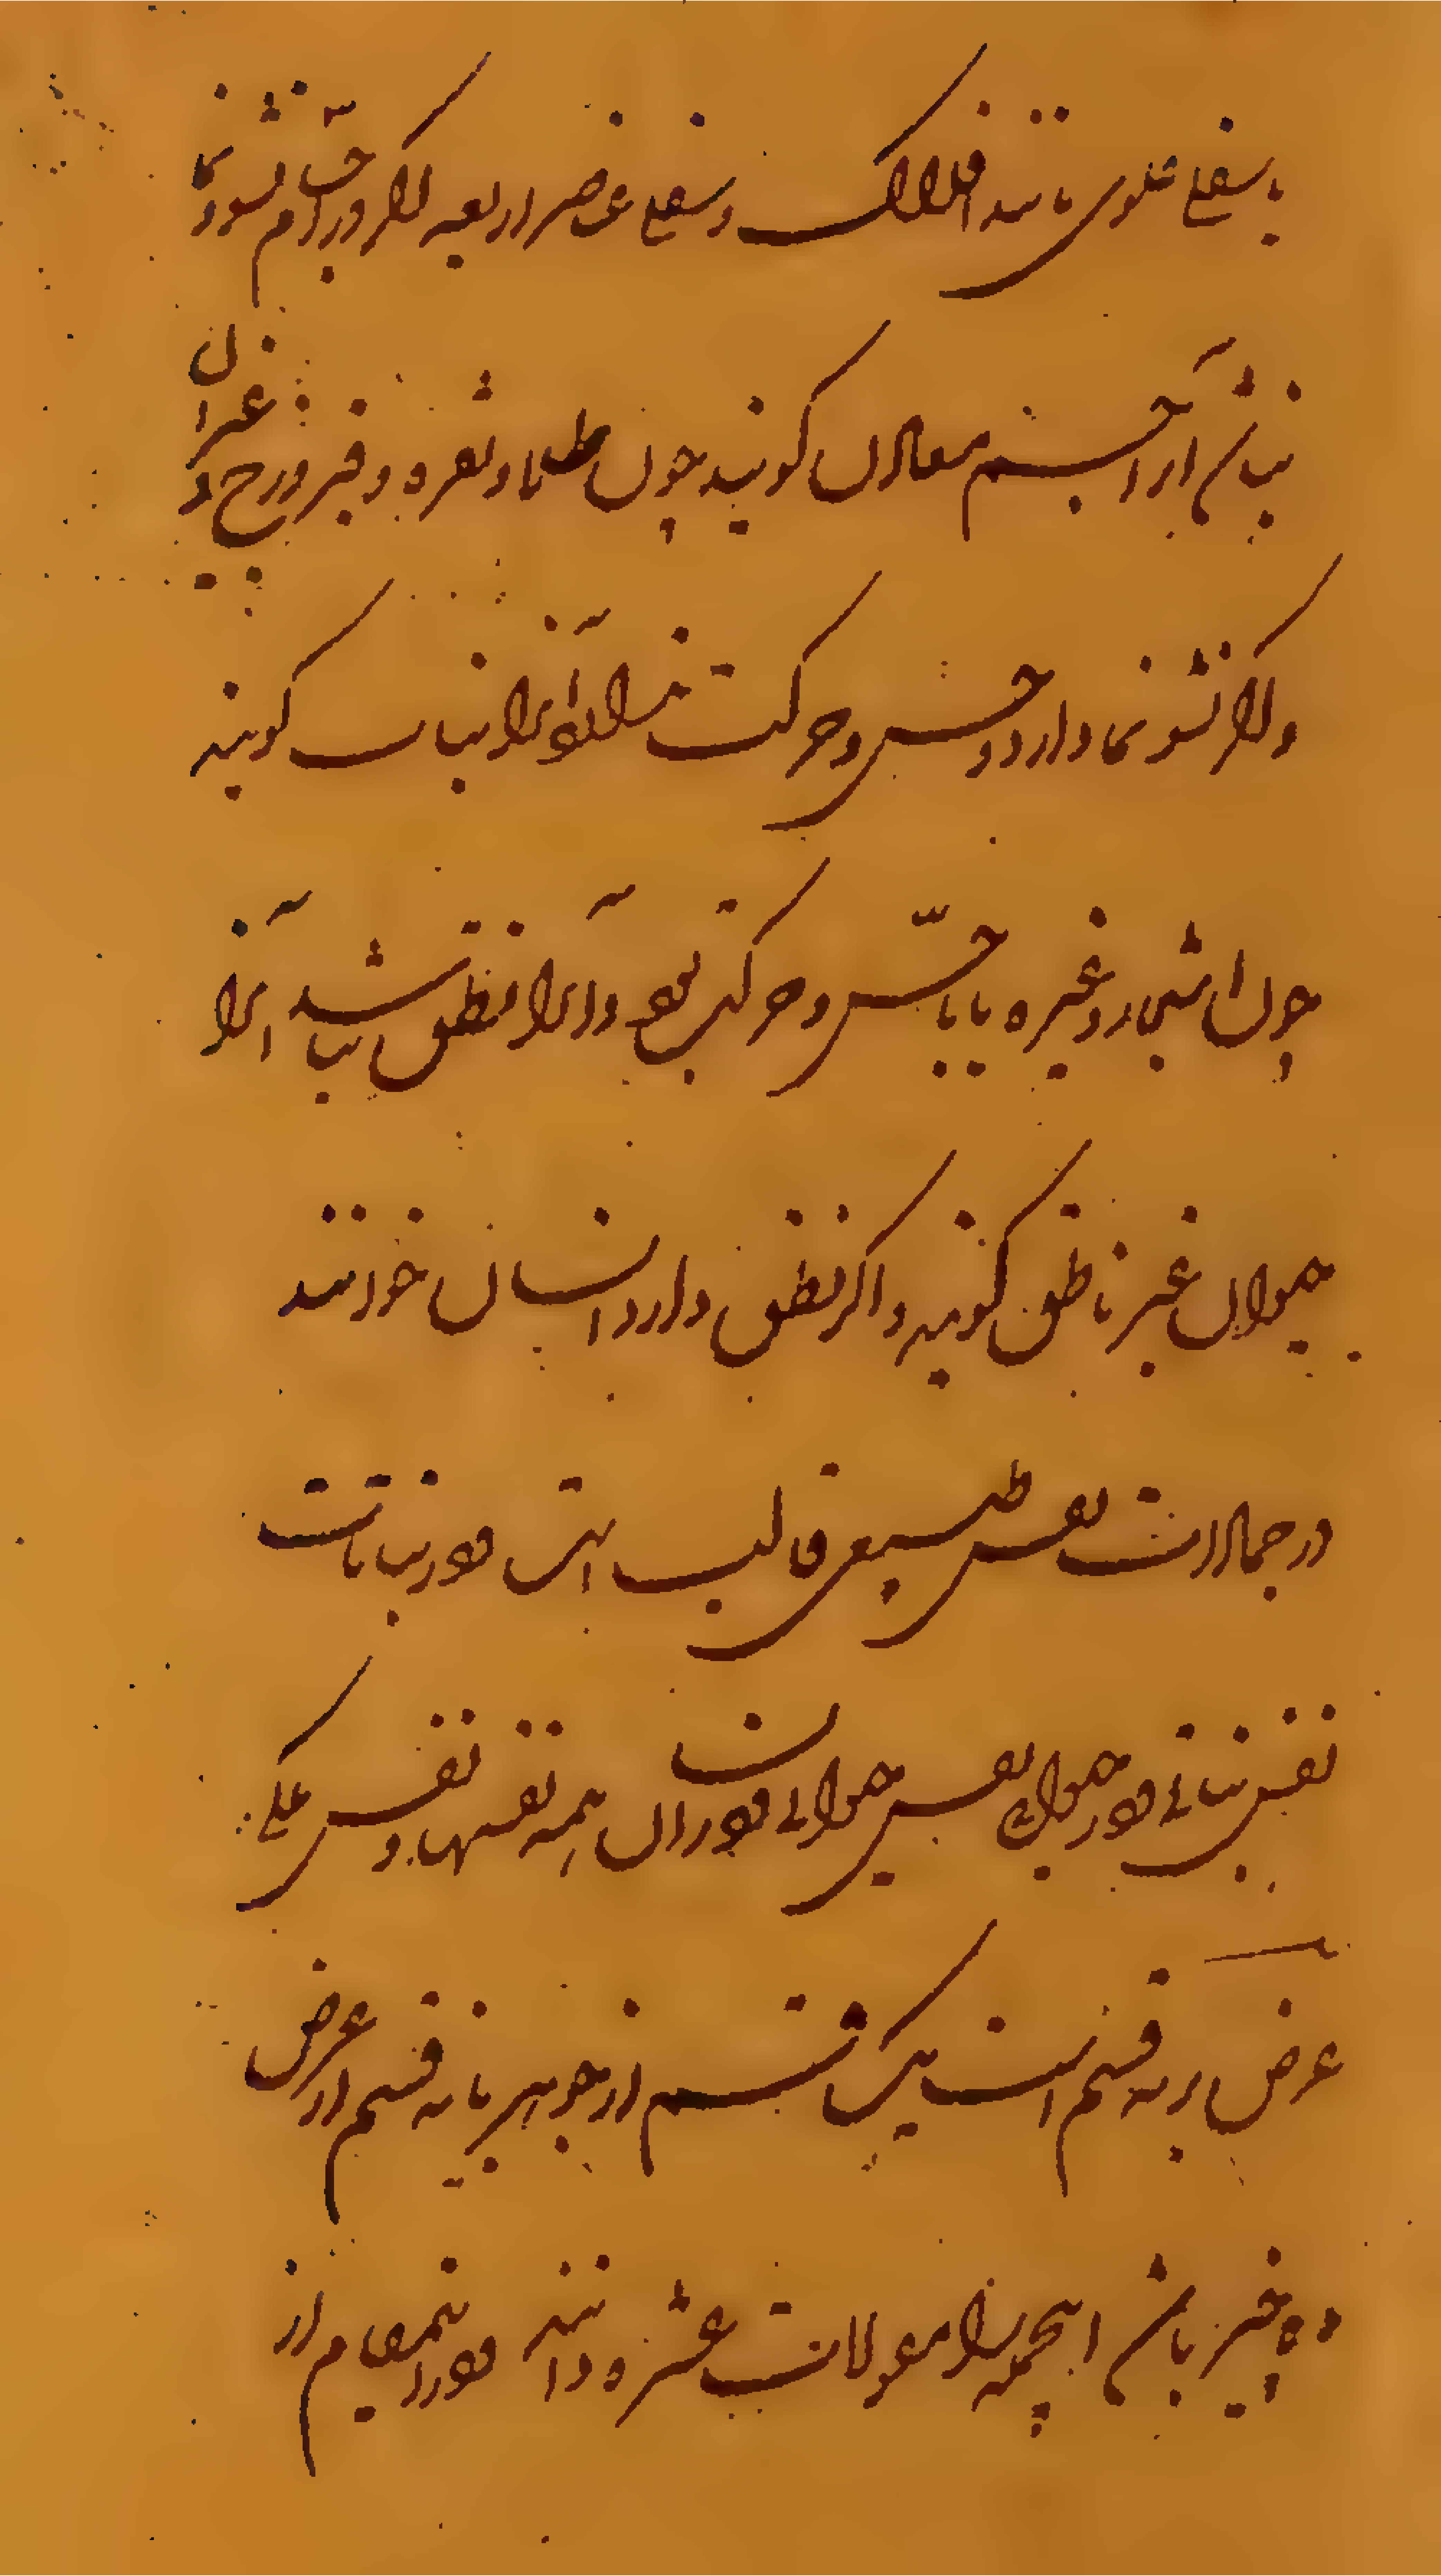 یا سفلی علوی مانند افلاک و سفلی عناصر اربعه اکر در اجسام نشو و نما
نباشد ان را جسم معادن کویند چون طلا و نقره و فیروزج و غیر ان
و اکر نشو نما دارد و حس و حرکت ندارد انرا نبات کویند
چون اشجار و غیره یا با حسّ و حرکت بود و انرا نطق نباشد آنرا
حیوان غیر ناطق کویند و اکر نطق دارد انسان خوانند
در جمادات نفس طبیعی غالب است و در نباتات
نفس نباتی و در حیوان نفس حیوانی و در انسان همه نفسها و نفس ملکی
عرض بر نه قسم است یک قسم از جوهر با نه قسم از عرض
ده چیز باشد اینهمه را مقولات عشره دانند و در اینمقام از